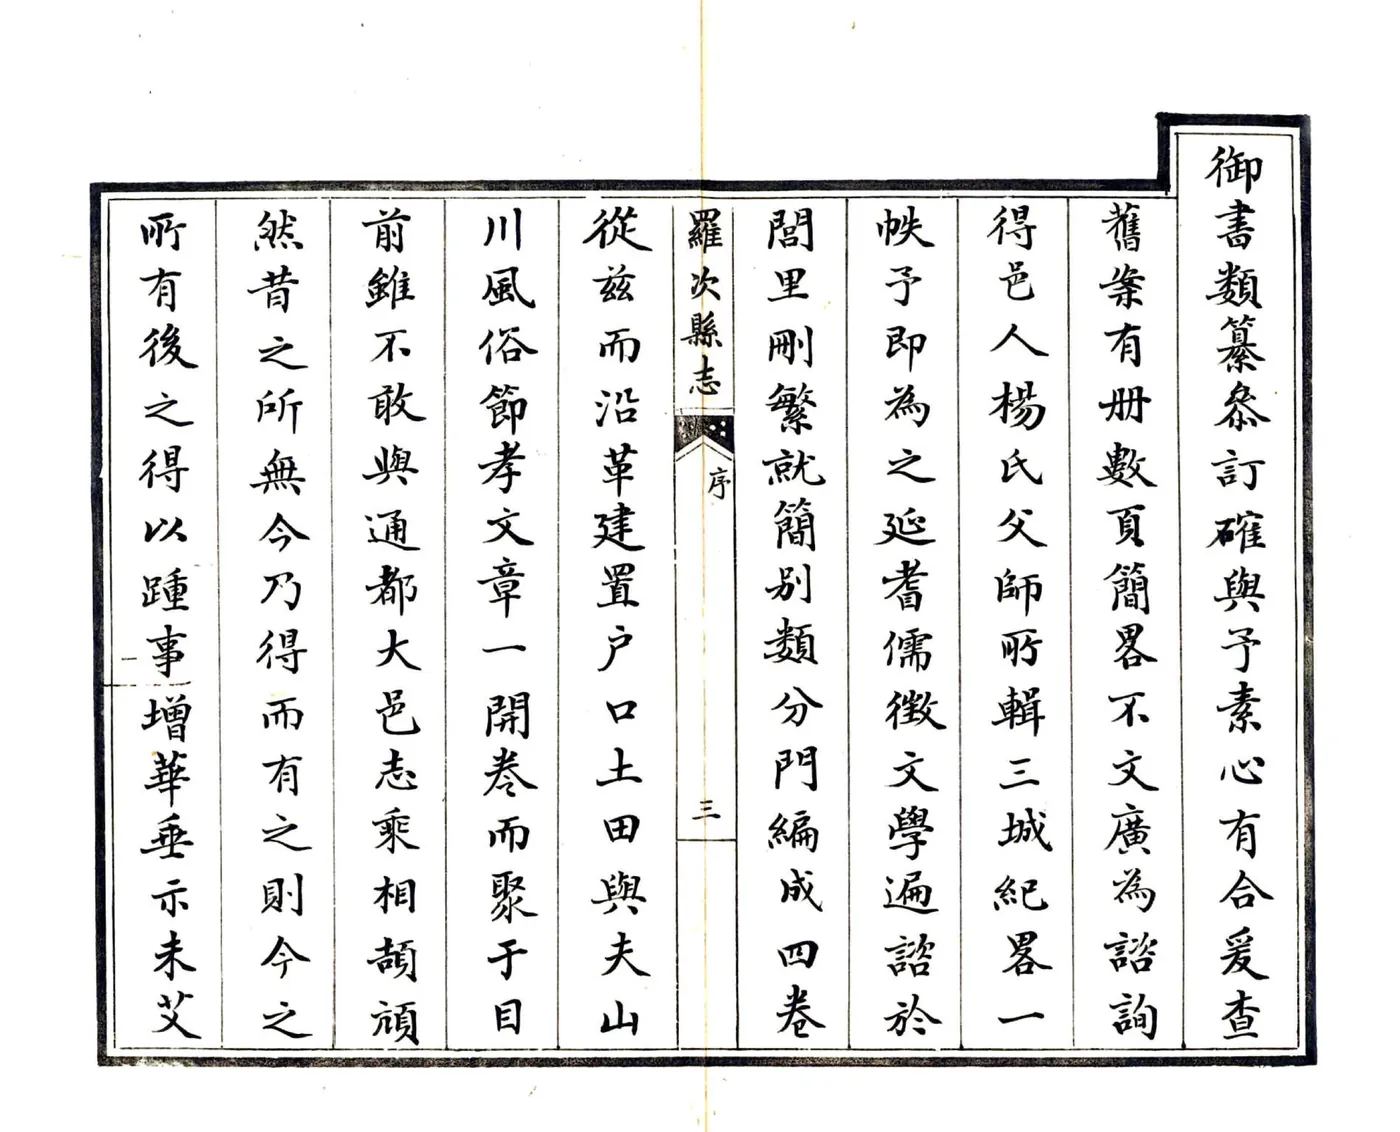 御書類纂叅訂確與予素心有合爰查
舊案有册數頁簡畧不文廣為諮詢
得邑人楊氏父師所輯三城紀畧一
帙予即為之延耆儒徵文學遍諮於
閭里刪繁就簡别類分門編成四卷
羅次縣志
序
三
從兹而沿革建置户口土田與夫山
川風俗節孝文章一開卷而聚于目
前雖不敢與通都大邑志乘相頡頏
然昔之所無今乃得而有之則今之
所有後之得以踵事增華垂示未艾